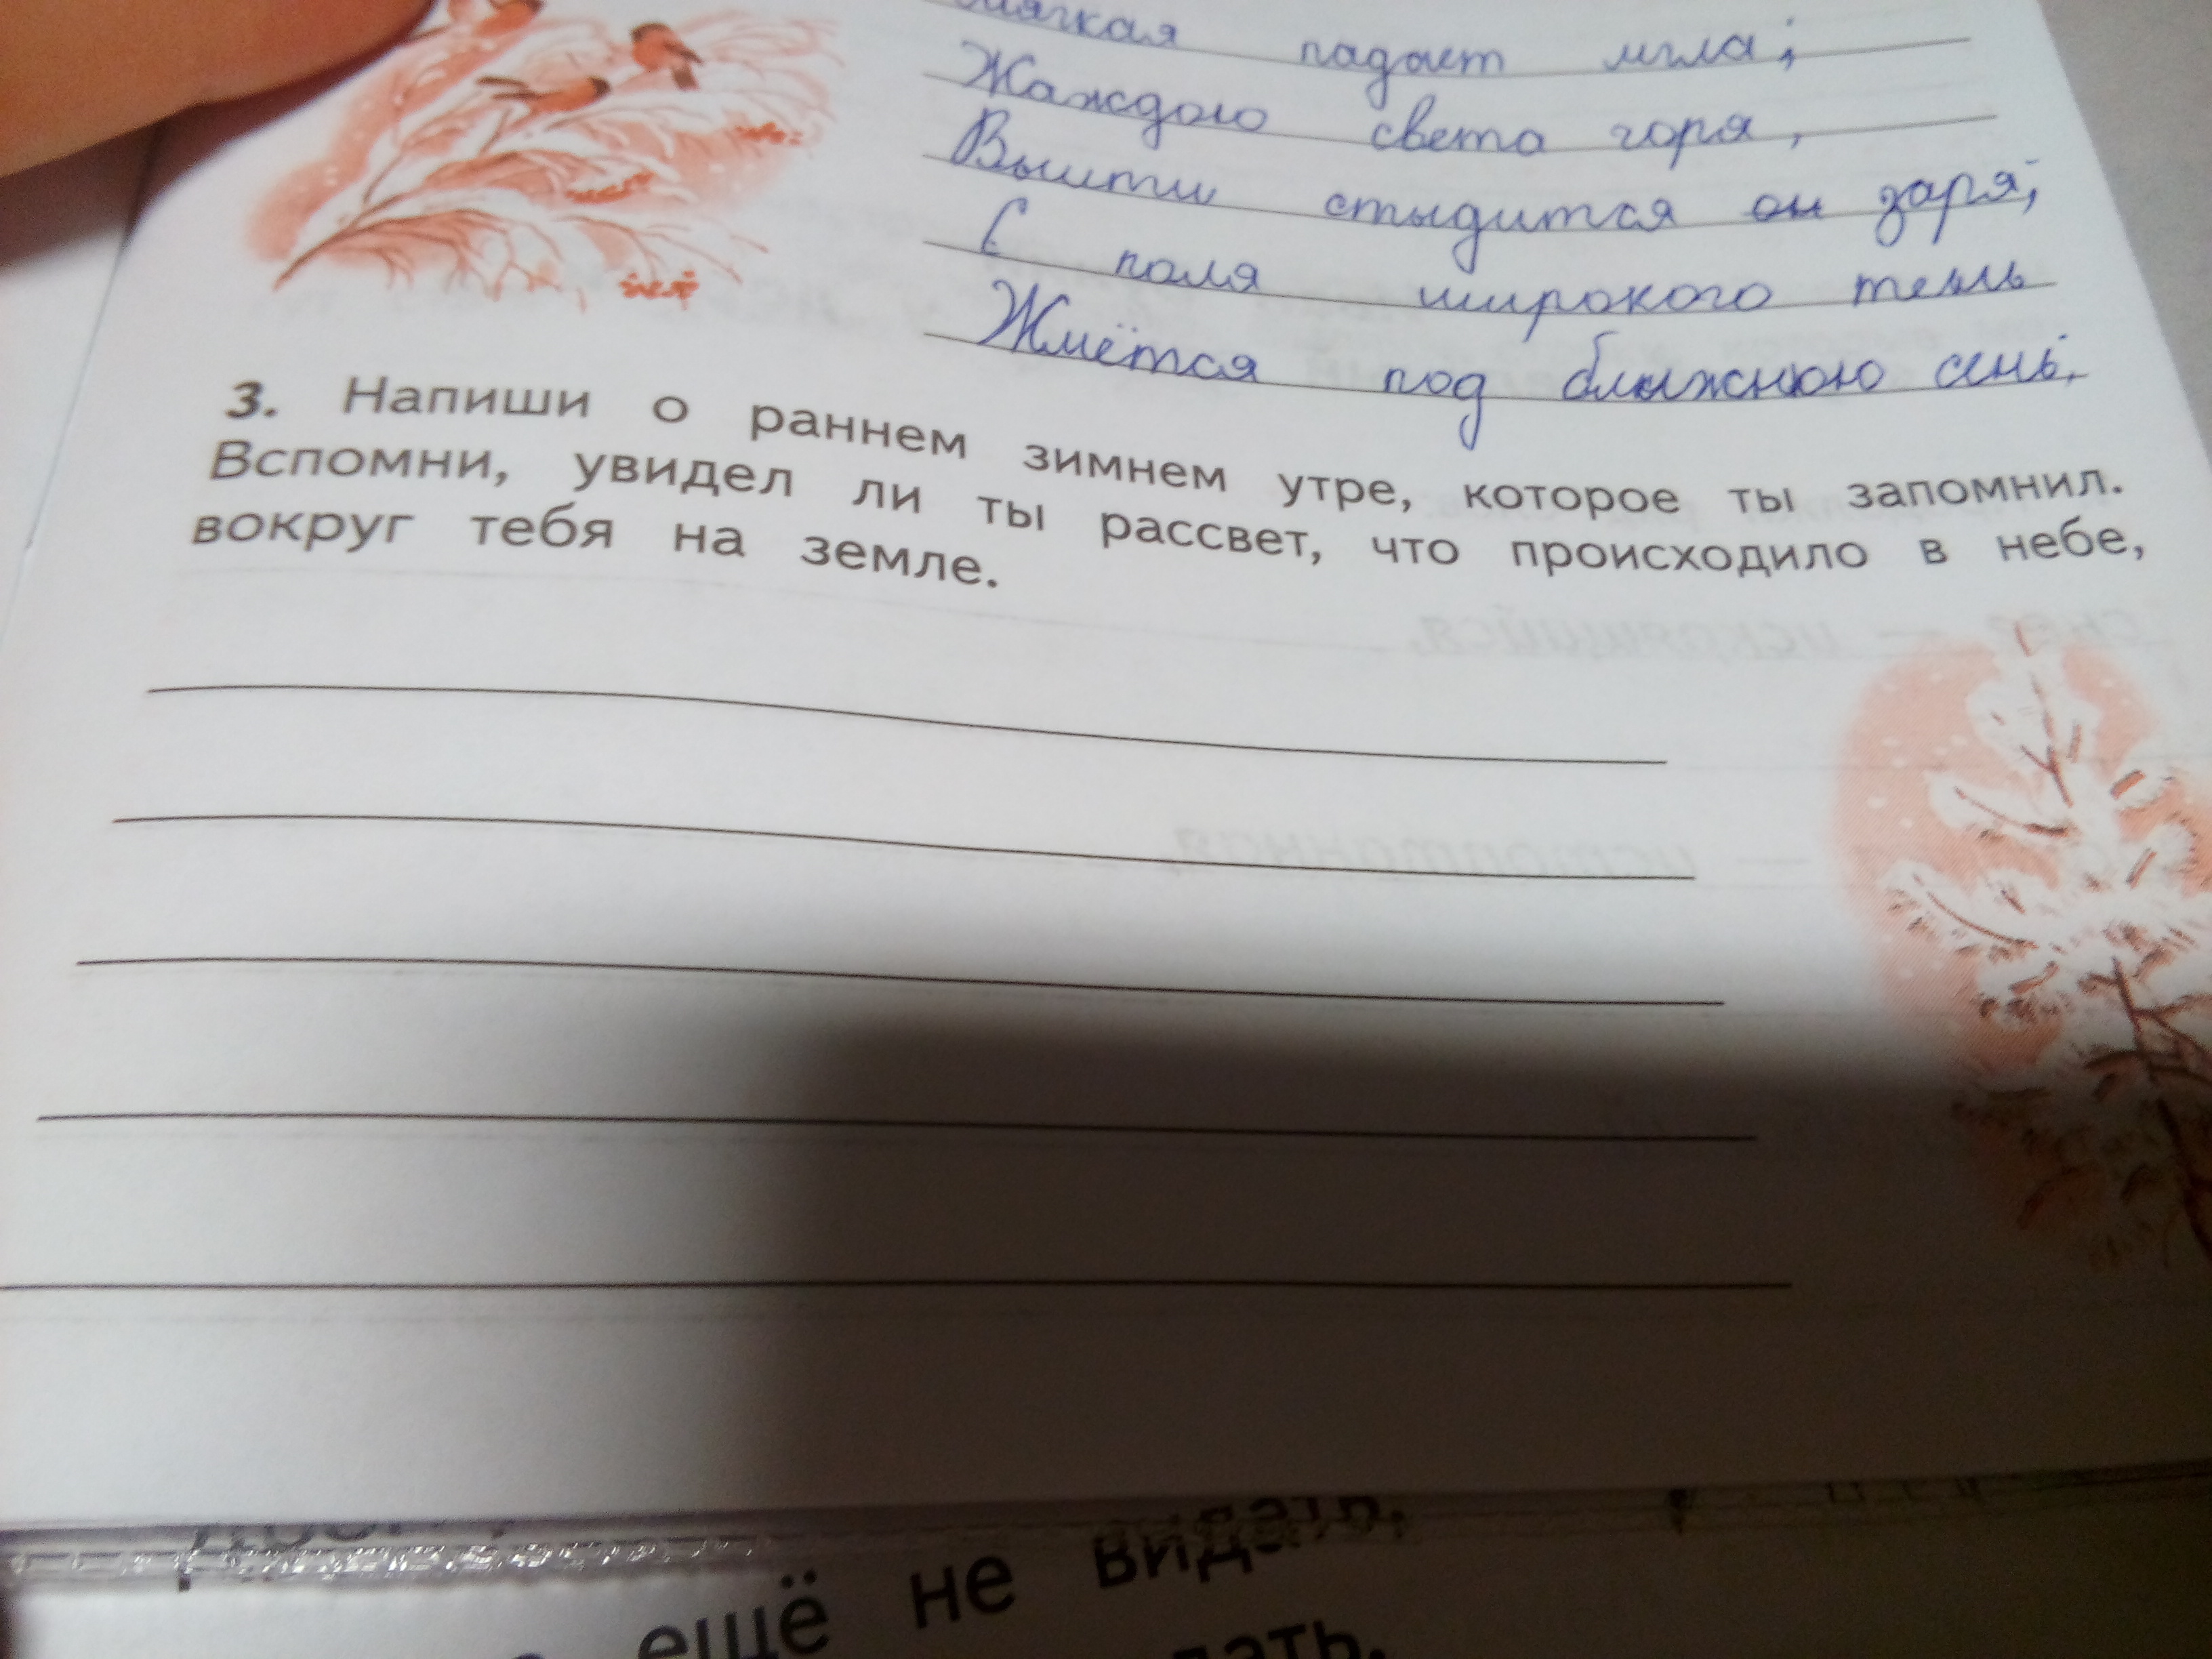 мягкая падает мгла;
Жаждою света горя,
Выйти стыдится он заря;
С поля широкого тень
Жмётся под ближнюю сень.
3. Напиши о раннем зимнем утре, которое ты запомнил.
Вспомни, увидел ли ты рассвет, что происходило в небе,
вокруг тебя на земле.
искрящийся.
— истоптанная,
видать,
ещё не